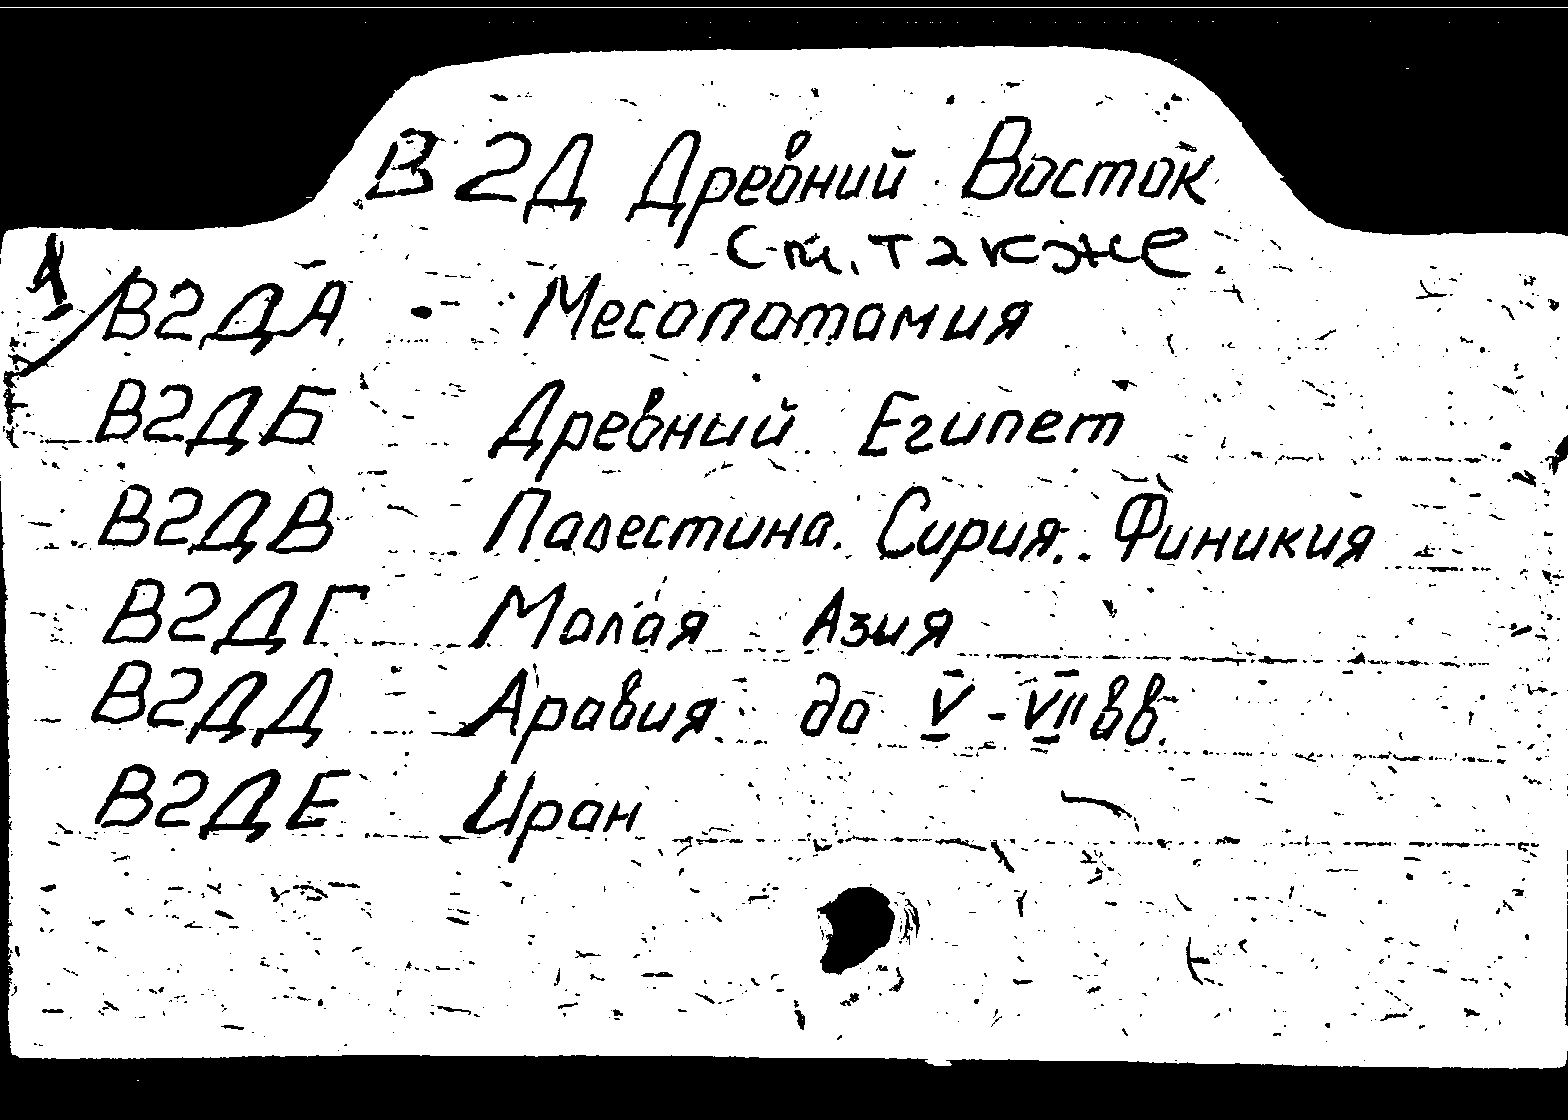 В 2Д Древний Восток
См. также
В2ДА - Месопотамия
В2ДБ Древний Египет
В2ДВ Палестина. Сирия. Финикия
В2ДГ Малая Азия
В2ДД Аравия до V - VII вв.
В2ДЕ Иран